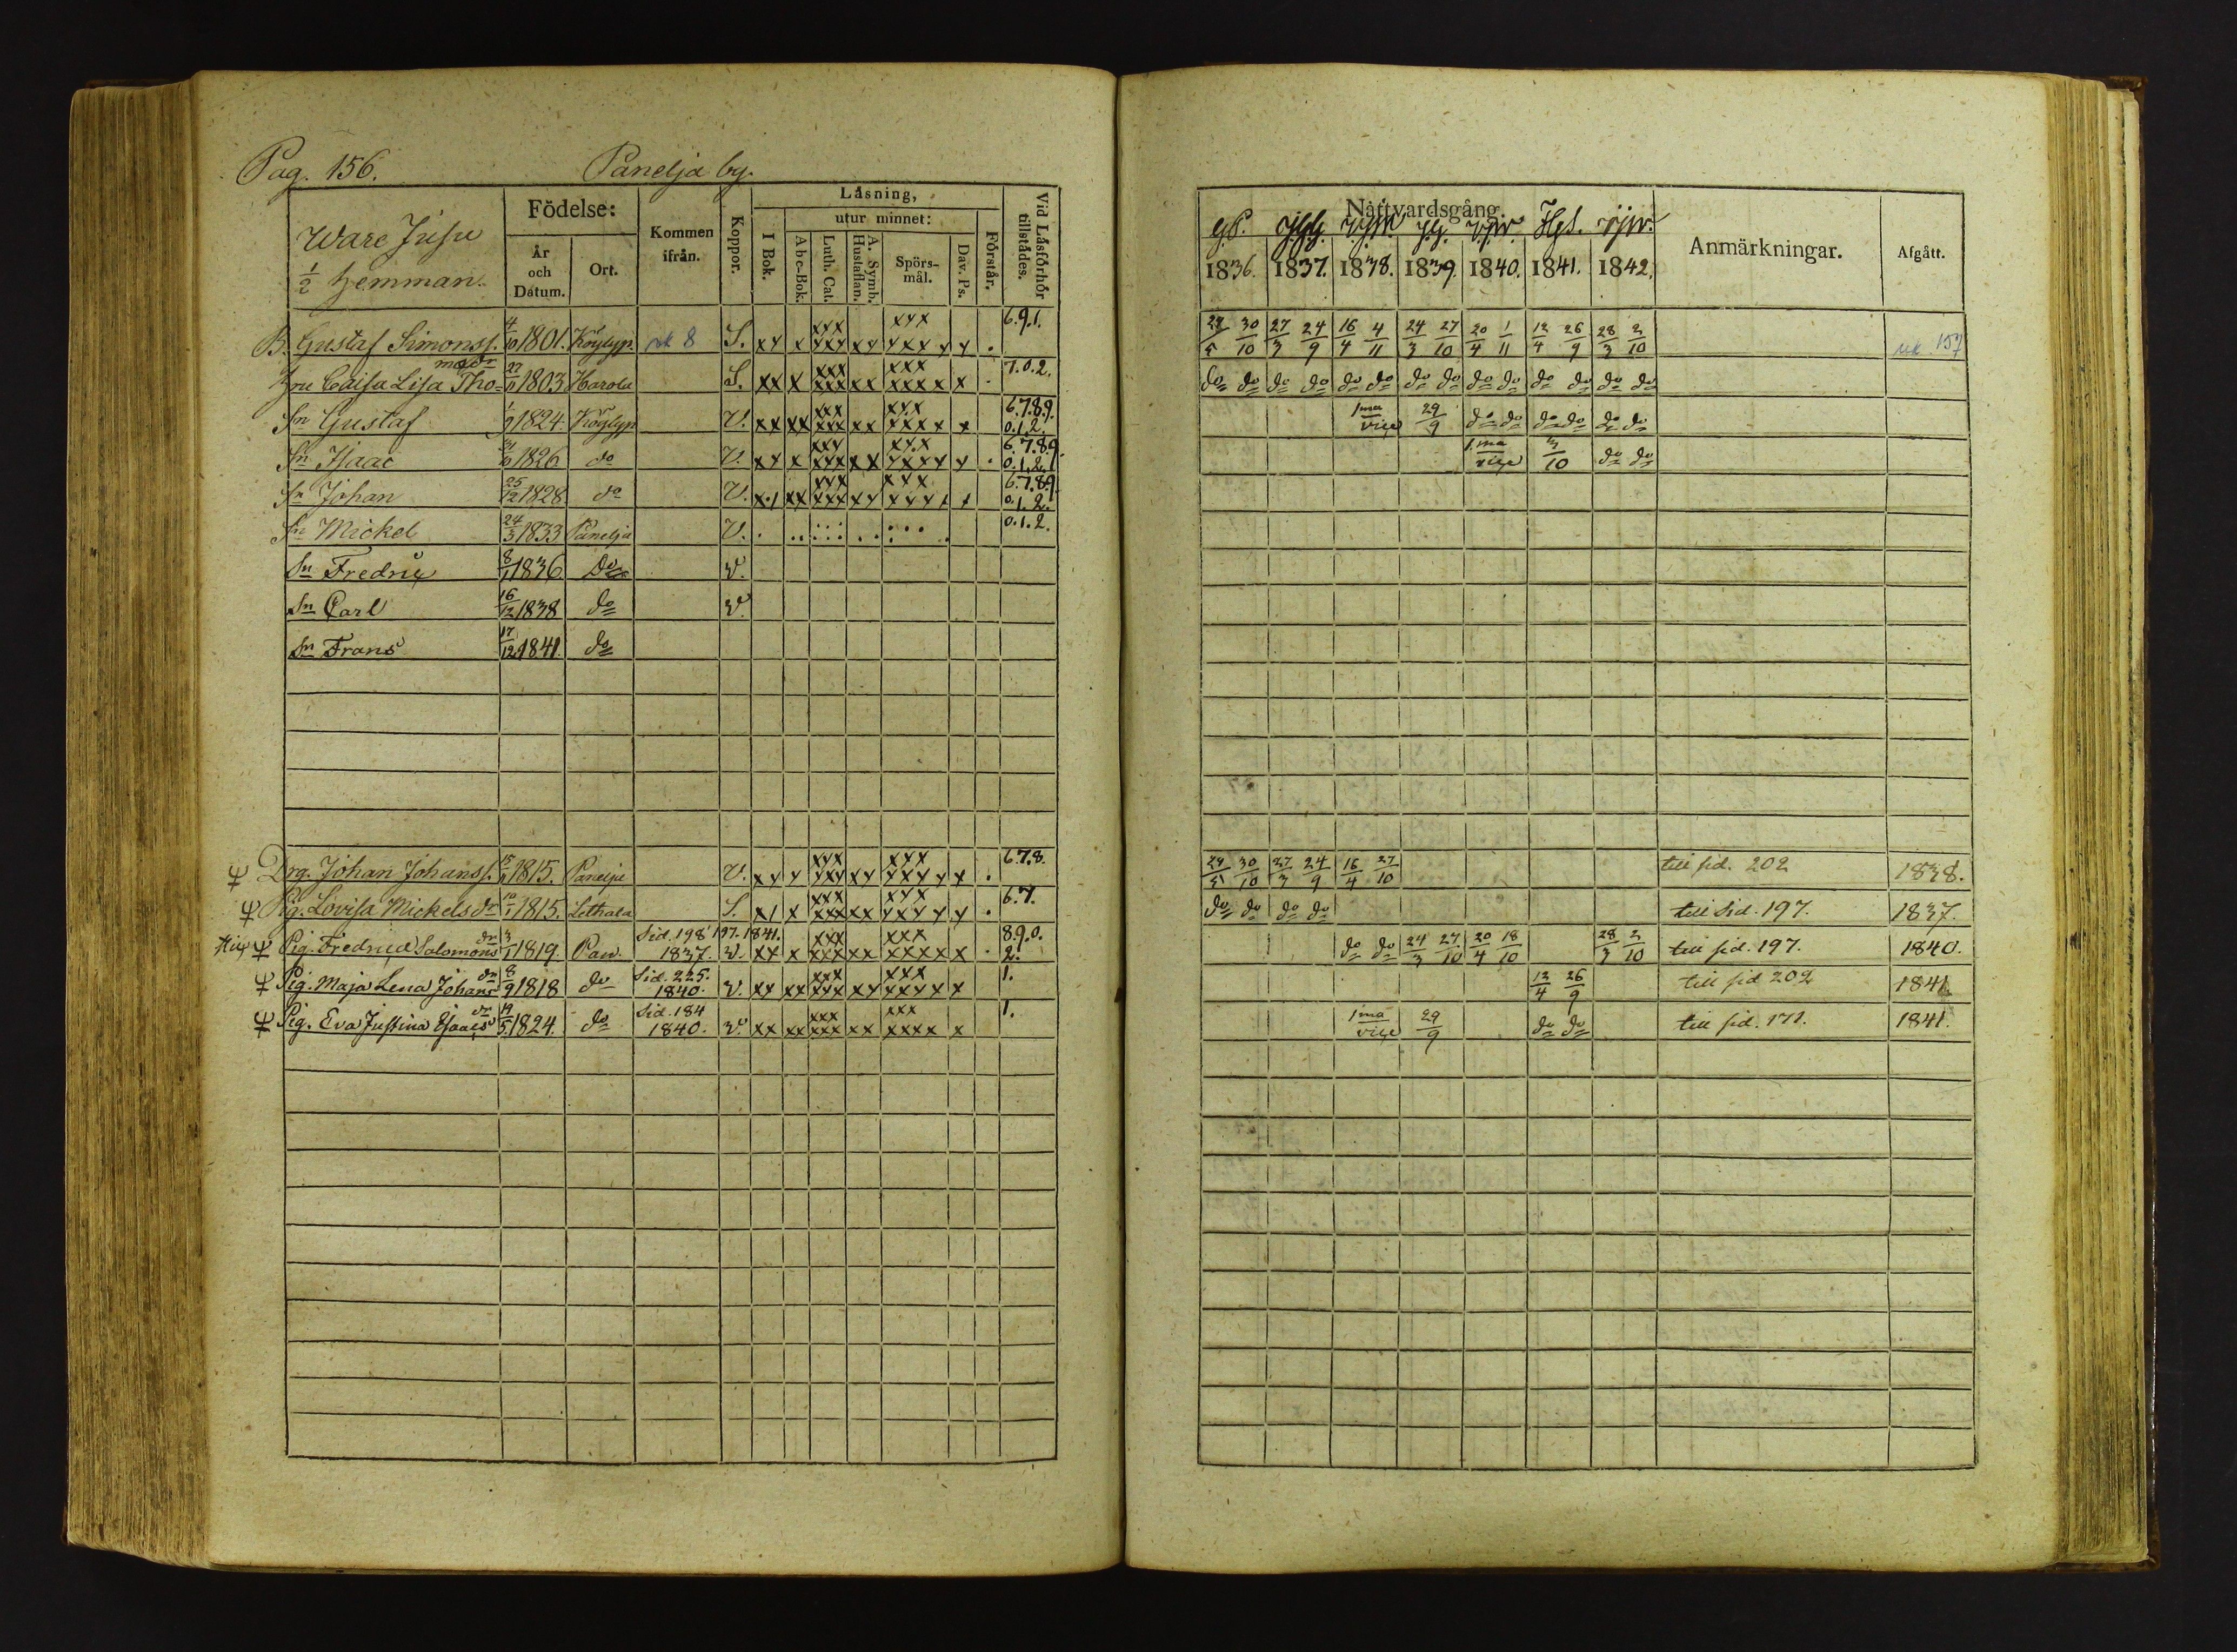 Pag. 156. Panelja by.
Ware Jusu
1/2 hemman.
Födelse:
År och Datum.
Ort.
Kommen ifrån.
Koppor.
Låsning,
I Bok.
utur minnet:
Abc-Bok.
Luth. Cat.
A. Symb. Hustaflan.
Spörsmål.
Dav. Ps.
Förstår.
Vid Låsförhör tillstådes.
B. Gustaf Simonss. 4/10 1801. Köylyp. S. xx x xxx xxx xx xxx xxxx x . 6.9.1.
Hru Caisa Lisa Tho= madr 1803 Harola S. xx x xxx xxx xx xxx xxxx x . 7.0.2.
Sn Gustaf 1824. Köylyp V. xx xx xxx xxx xx xxx xxxx x 6.7.8.9. 0.1.2.
Sn Isaac 1826 do V. xx x xxx xxx xx xxx xxxx x . 6.7.8.9. 0.1.2.
Sn Johan 25/12 1828 do V. xx xxx xxx xx xxx 6.7.8.9. 0.1.2.
Sn Mickel 24/3 1833 Panelja V. 0.1.2.
Sn Fredric 8/1 1836 Do V.
Sn Carl 16/12 1838 do V.
Sn Frans 17/12 1841. do
Drg. Johan Johanss. 1815. Panelja V. xx x xxx xxx xx xxx xxxx x . 6.7.8.
Pig. Lovisa Mickelsdr 1815. Lethala S. x xxx xxx xx xxx xxxx x . 6.7.
Pig. Fredrica Salomons dr 3/1 1819. Pan. Sid. 198 197. 1841. 1837. V. xx x xxx xxx xx xxx xxxx x . 8.9.0. 2.
Pig. Maja Lena Johans dr 8/9 1818 do Sid. 225. 1840. V. xx xx xxx xxx xx xxx xxxx x 1.
Pig. Eva Justina Isaacs dr 1824. do Sid. 184 1840. V. xx xx xxx xxx xx xxx xxxx x 1.
Nattvardsgång.
1836. 1837. 1838. 1839. 1840. 1841. 1842.
Anmärkningar.
Afgått.
29/5 30/10 27/3 24/9 16/4 4/11 24/3 27/10 20/4 1/11 12/4 26/9 28/3 2/10 157
do do do do do do do do do do do do do do
1ma vice 29/9 do do do do do do
1ma vice 3/10 do do
29/5 30/10 27/3 24/9 16/4 27/10 till sid. 202 1838.
do do do do till Sid. 197. 1837.
do do 24/3 27/10 20/4 18/10 28/3 2/10 till sid. 197. 1840.
12/4 26/9 till sid 202 1841.
1ma vice 29/9 do do till sid. 171. 1841.